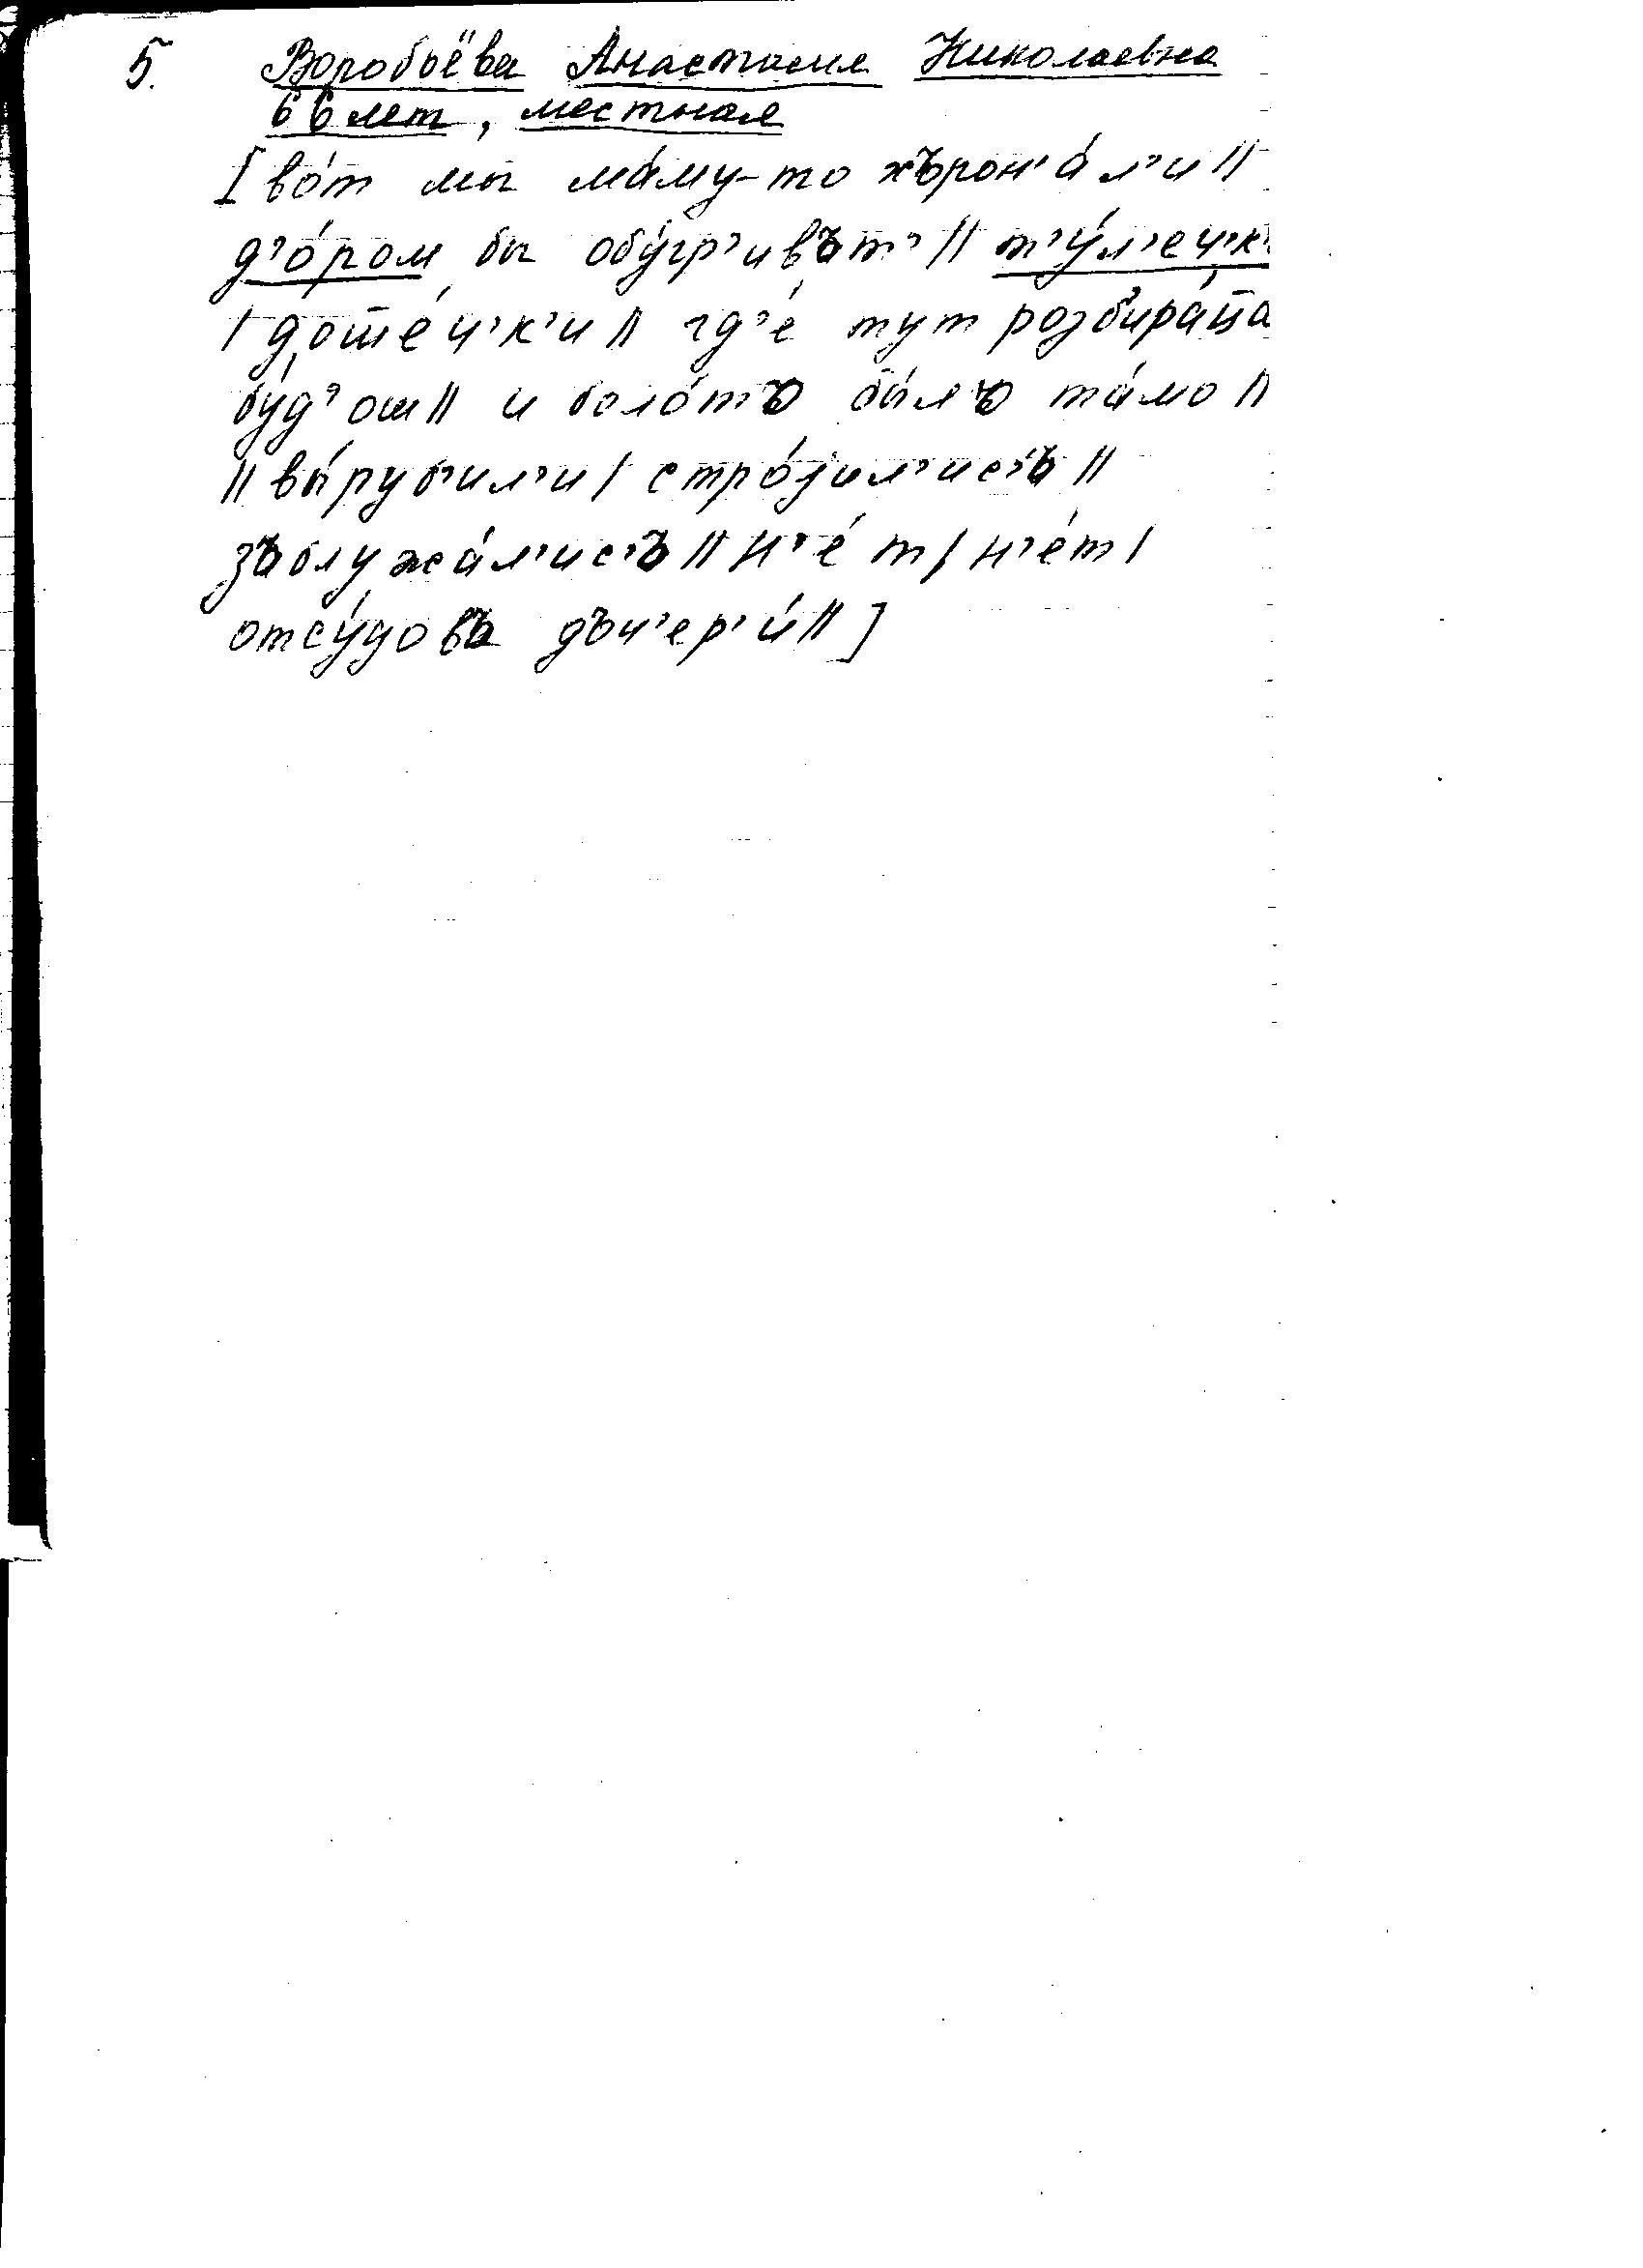 5. Воробьёва Анастасия Николаевна
66 лет, местная
[во́т мы ма́му-то хърон'а́л'и||
д'о́ром бы обу́гр'ивът'|| т'у́л'еч'к'
| дошéч'к'и|| гд'é тут розб'ира́ц̄а
бу́д'ош|| и боло́тъ бы́лъ та́мо||
|| вы́руб'ил'и| стро́јил'ис'ъ||
зъблужа́л'ис'ъ|| н'é т| н'éт|
отсу́довъ дъч'ер'и́||]